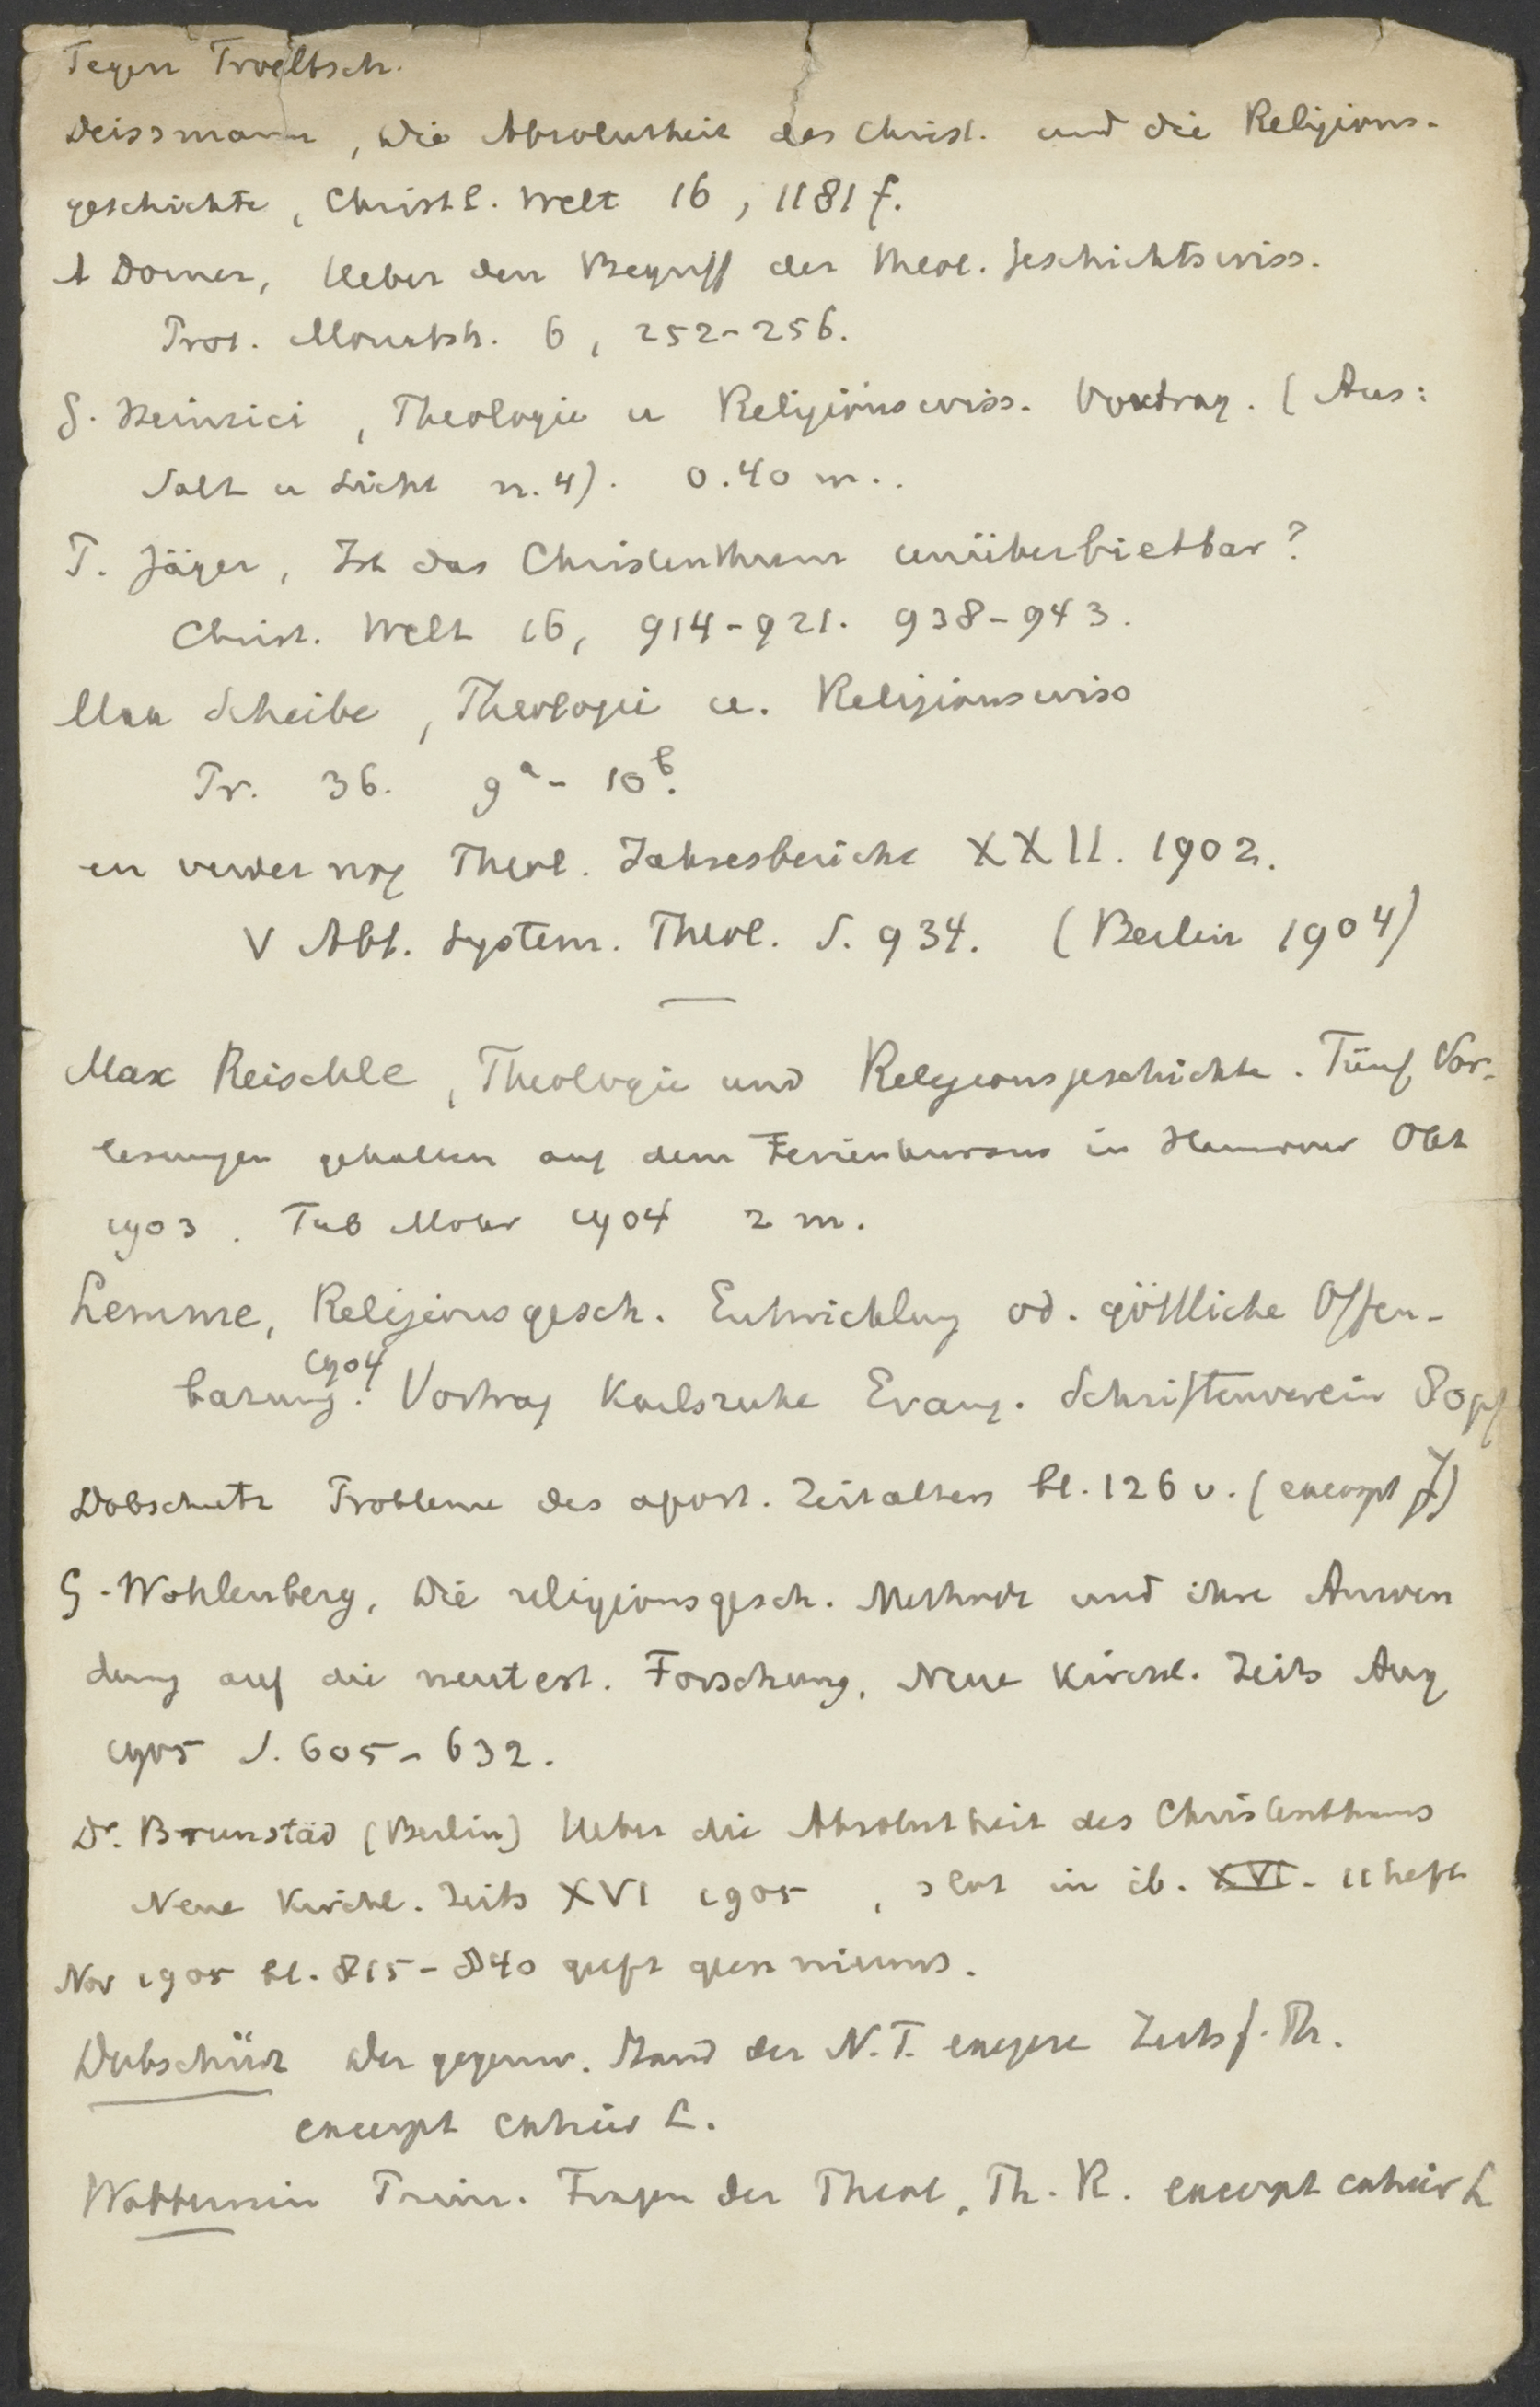 Tegen Troeltsch.
Deissmann, Die Absolutheit des Christ. und die Religions-
geschichte, Christl. Welt 16, 1181 f.
A Dorner, Ueber den Begriff der Theol. Geschichtswiss.
Prot. Monatsh. 6, 252-256.
G. Heinrici, Theologie u Religionswiss. Vortrag. (Aus:
Salt u Licht n. 4). 0.40 m.
P. Jäger, Ist das Christenthum unüberbietbar?
Christ. Welt 16, 914-921. 938-943.
Max Scheibe, Theologie u. Religionswiss
Pr. 36. 9a - 10b.
en verder nog Theol. Jahresbericht XXII. 1902.
V Abt. System. Theol. S. 934. (Berlin 1904)
Max Reischle, Theologie und Religionsgeschichte. Fünf Vor-
lesungen gehalten auf dem Ferienkursus in Hannover Okt
1903. Tub Mohr 1904 2 m.
Lemme, Religionsgesch. Entwicklung od. göttliche Offen-
barung. 1904 Vortrag Karlsruhe Evang. Schriftenverein 80 pf
Dobschutz Probleme des apost. Zeitalters bl. 126 v. (excerpt J)
G. Wohlenberg, Die religionsgesch. Methode und ihre Anwen
dung auf die neutest. Forschung, Neue Kirchl. Zeits Aug
1905 S. 605-632.
Dr. Brunstäd (Berlin) Ueber die Absolutheit des Christenthums
Neue Kirchl. Zeits XVI 1905, slot in ib. XVI. 11 heft
Nov 1905 bl. 815-840 geeft geen nieuws.
Dobschütz Der gegenw. Stand der N.T. exegese Zeits f. Th.
excerpt cahier L.
Wobbermin Prinz. Fragen der Theol, Th. R. excerpt cahier L